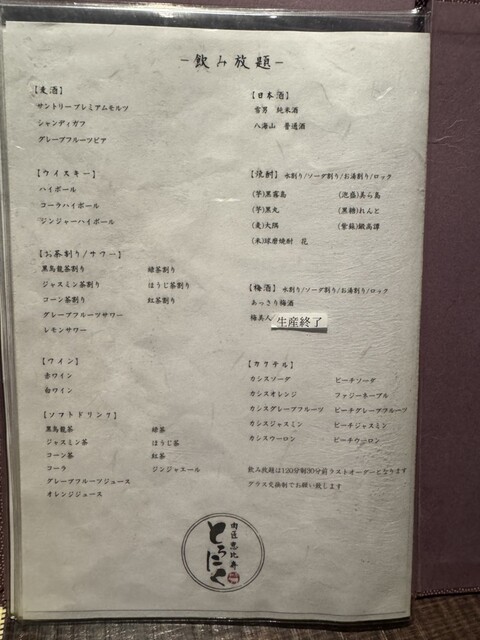 -飲み放題-
【麦酒】
サントリープレミアムモルツ
シャンディガフ
グレープフルーツビア
【ウイスキー】
ハイボール
コーラハイボール
ジンジャーハイボール
【お茶割り/サワー】
黒烏龍茶割り 緑茶割り
ジャスミン茶割り ほうじ茶割り
コーン茶割り 紅茶割り
グレープフルーツサワー
レモンサワー
【ワイン】
赤ワイン
白ワイン
【ソフトドリンク】
黒烏龍茶 緑茶
ジャスミン茶 ほうじ茶
コーン茶 紅茶
コーラ ジンジャエール
グレープフルーツジュース
オレンジジュース
【日本酒】
雪男 純米酒
八海山 普通酒
【焼酎】 水割り/ソーダ割り/お湯割り/ロック
(芋)黒霧島 (泡盛)美ら島
(芋)黒丸 (黒糖)れんと
(麦)大隅 (紫蘇)鍛高譚
(米)球磨焼酎 花
【梅酒】 水割り/ソーダ割り/お湯割り/ロック
あっさり梅酒
梅美人 生産終了
【カクテル】
カシスソーダ ピーチソーダ
カシスオレンジ ファジーネーブル
カシスグレープフルーツ ピーチグレープフルーツ
カシスジャスミン ピーチジャスミン
カシスウーロン ピーチウーロン
飲み放題は120分制30分前ラストオーダーとなります
グラス交換制でお願い致します
肉匠恵比寿
とろにく